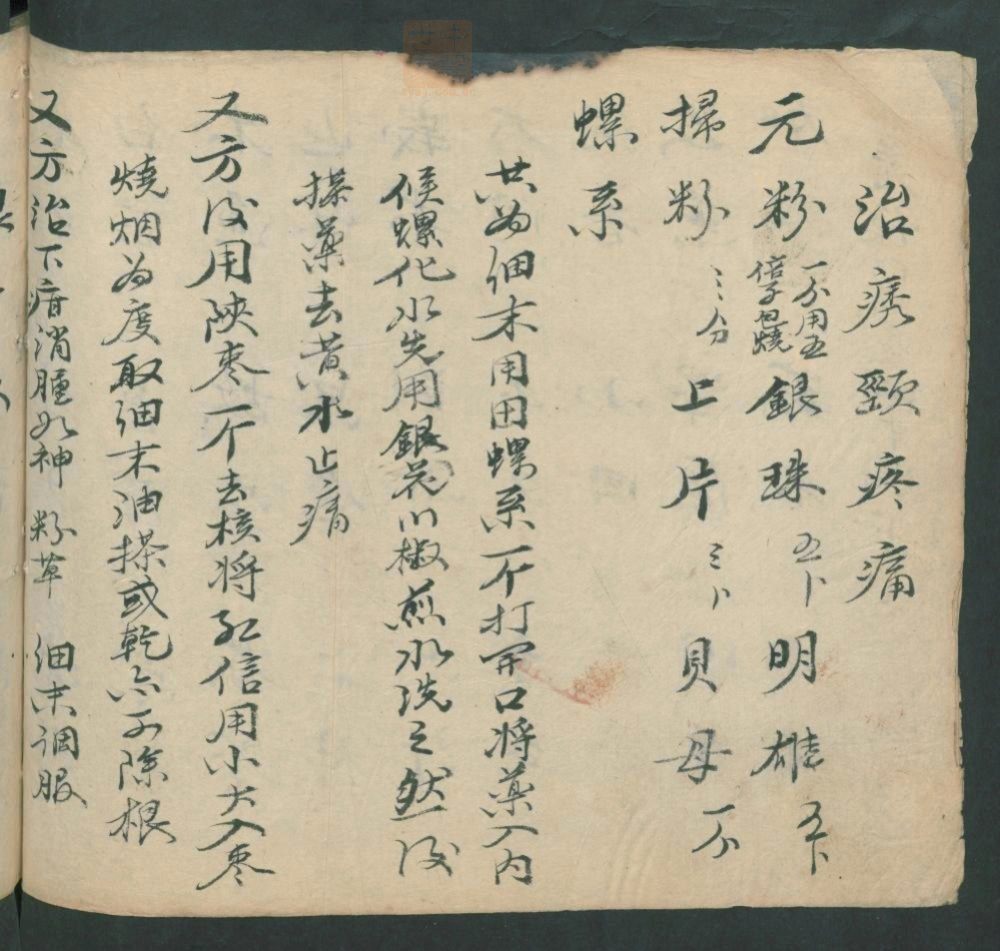 治痿頸疼痛
元粉一分用五倍子包燒銀珠五卜明雄五卜
掃粉三分上片三卜貝母一分
螺系
共為細末用田螺系一个打開口將藥入內
候螺化水先用銀花川椒煎水洗之然後
搽藥去黃水止痛
又方後用陝棗一个去核將紅信用小大入棗
燒烟為度取細末油搽或乾亦可除根
又方治下疳消腫如神 粉草 細末調服